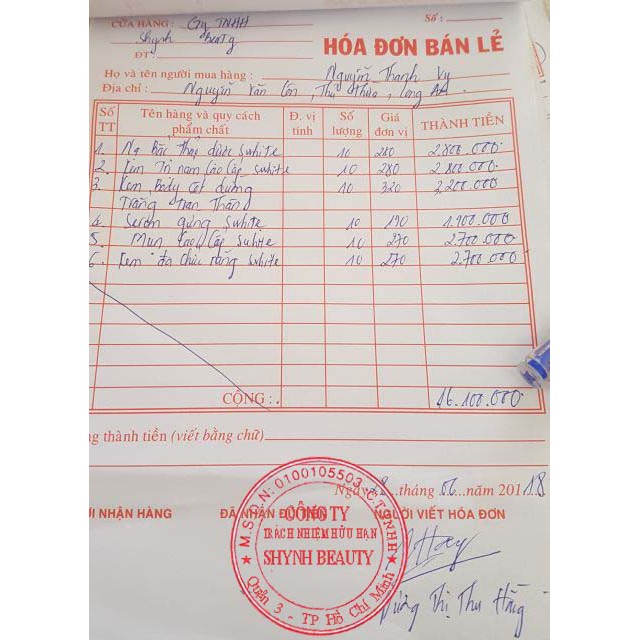 CỬA HÀNG : Cty TNHH
Shynh Beauty
ĐT
Số :
HÓA ĐƠN BÁN LẺ
Họ và tên người mua hàng : Nguyễn Thanh Vy
Địa chỉ : Nguyễn Văn Côn, Thủ Thừa, Long An.
Số TT Tên hàng và quy cách phẩm chất Đ. vị tính Số lượng Giá đơn vị THÀNH TIỀN
1. Ng Bắc Thảo dược Swhite 10 280 2.800.000
2. Kem Trị nám Cao Cấp Swhite 10 280 2.800.000
3. Kem Body cốt dừng 10 320 3,200.000
Trắng Thần
4. Serum gừng Swhite 10 190 1.900.000
5. Mụn Cao Cấp Swhite 10 270 2.700.000
6. Kem đa chức năng Swhite 10 270 2.700.000
CỘNG : 16.100.000
g thành tiền (viết bằng chữ)
Ngày ...tháng 06...năm 201 18
ỜI NHẬN HÀNG ĐÃ NHẬN ĐỦ TIỀN NGƯỜI VIẾT HÓA ĐƠN
M.S.D.N: 0100105503 - C.T.TNHH
CÔNG TY
TRÁCH NHIỆM HỮU HẠN
SHYNH BEAUTY
Quận 3 - TP Hồ Chí Minh
Hay
Thị Thu Hằng